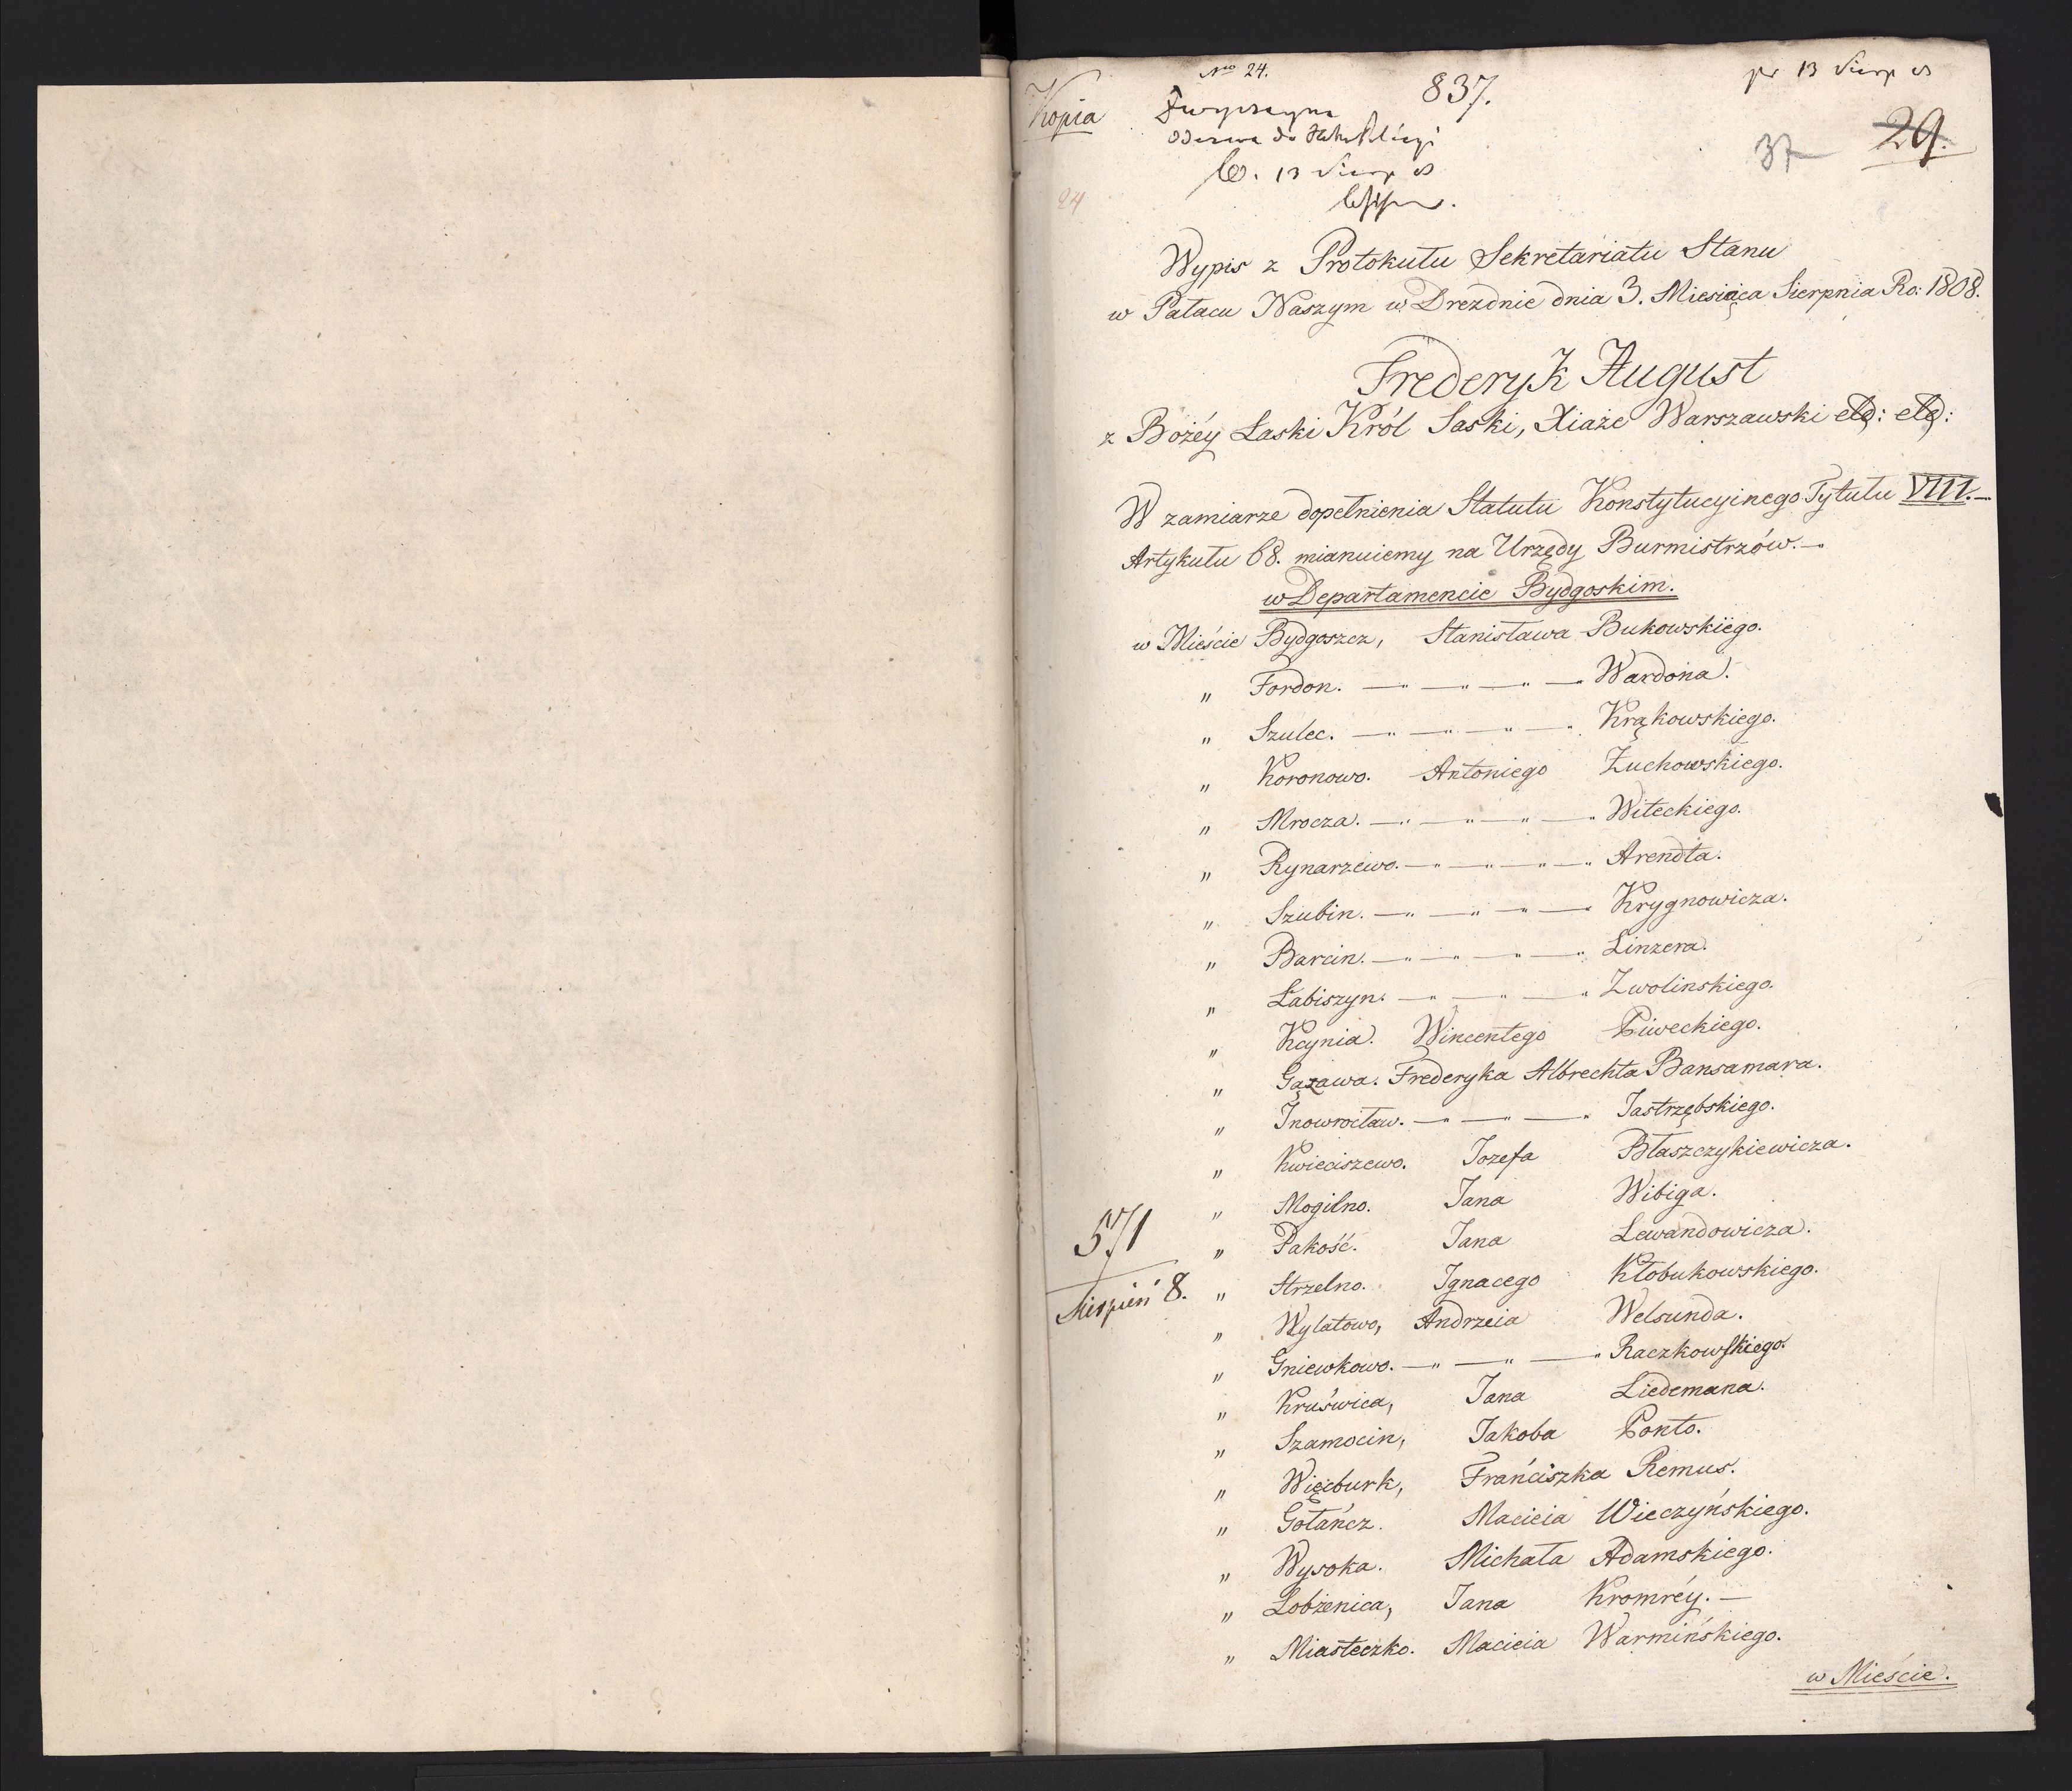 Nro 24.
837.
pr 13 Sierp 08
Kopia
29.
37
13 Sierp 08
24
Wypis z Protokułu Sekretariatu Stanu
w Pałacu Naszym w Dreznie dnia 3. Miesiąca Sierpnia Ro: 1808.
Frederyk August
z Bożéy Łaski Król Saski, Xiąże Warszawski etc: etc:
W zamiarze dopełnienia Statutu Konstytucyinego Tytułu VIII.
Artykułu 68. mianuiemy na Urzędy Burmistrzów.
w Departamencie Bydgoskim.
w Mieście Bydgoszcz, Stanisława Bukowskiego.
" Fordon. — " — " — " — " Wardona.
" Szulec. — " — " — " — " Krąkowskiego.
" Koronowo. Antoniego Żuchowskiego.
" Mrocza. — " — " — " — " Witeckiego.
" Rynarzewo. — " — " — " — " Arendta.
" Szubin. — " — " — " — " Krygnowicza.
" Barcin. — " — " — " — " Linzera.
" Łabiszyn. — " — " — " Zwolinskiego.
" Kcynia. Wincentego Piweckiego.
" Gązawa. Frederyka Albrechta Bansamara.
" Inowrocław. — " — " — " Jastrzębskiego.
" Kwieciszewo. Jozefa Błaszczykiewicza.
" Mogilno. Jana Wibiga.
571
" Pakość. Jana Lewandowicza.
Sierpień 8.
" Strzelno. Ignacego Kłobukowskiego.
" Wylatowo, Andrzeia Welsunda.
" Gniewkowo. — " — " — " Raczkowskiego.
" Kruświca, Jana Liedemana.
" Szamocin, Jakoba Ponto.
" Więcburk, Franciszka Remus.
" Gołańcz. Macieia Wieczyńskiego.
" Wysoka. Michała Adamskiego.
" Łobżenica, Jana Kromréy. —
" Miasteczko. Macieia Warmińskiego.
w Mieście.